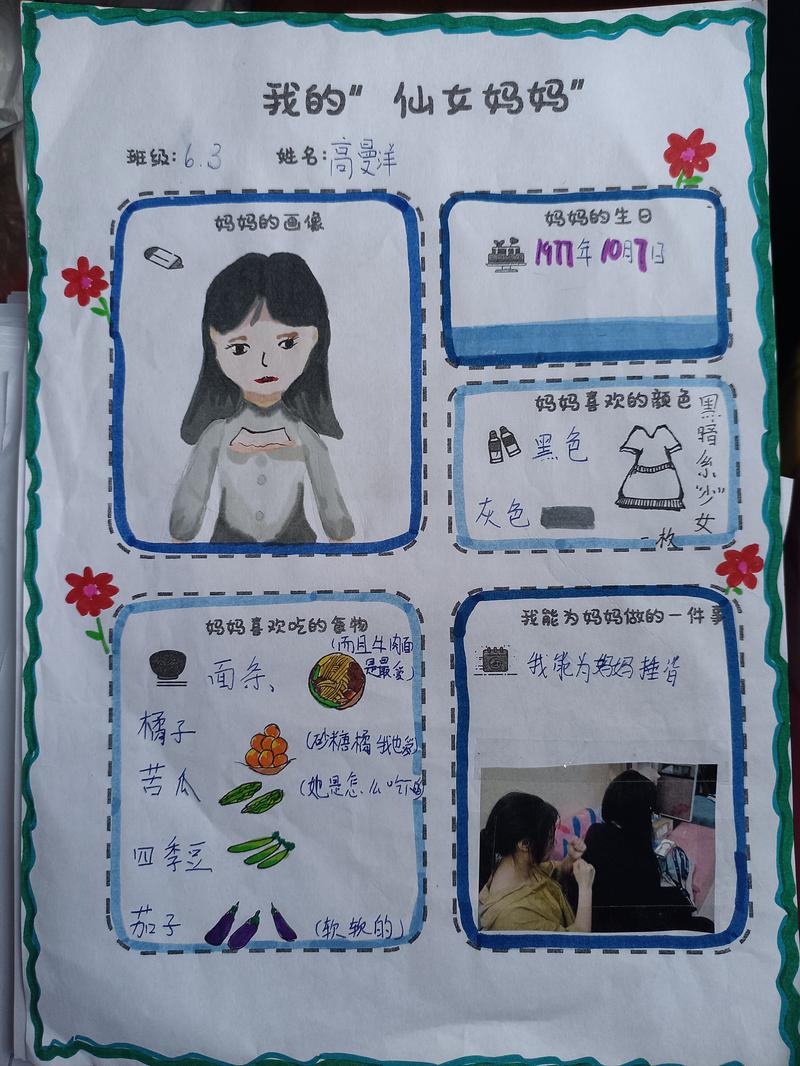 我的“仙女妈妈”
班级:6.3 姓名:高曼洋
妈妈的画像
妈妈的生日
1977年10月7日
妈妈喜欢的颜色
黑色
灰色
黑暗系“少”女
一枚
妈妈喜欢吃的食物
面条、
(而且牛肉面
是最爱)
橘子
(砂糖橘 我也爱)
苦瓜
(她是怎么吃下的
四季豆
茄子
(软软的)
我能为妈妈做的一件事
我能为妈妈捶背